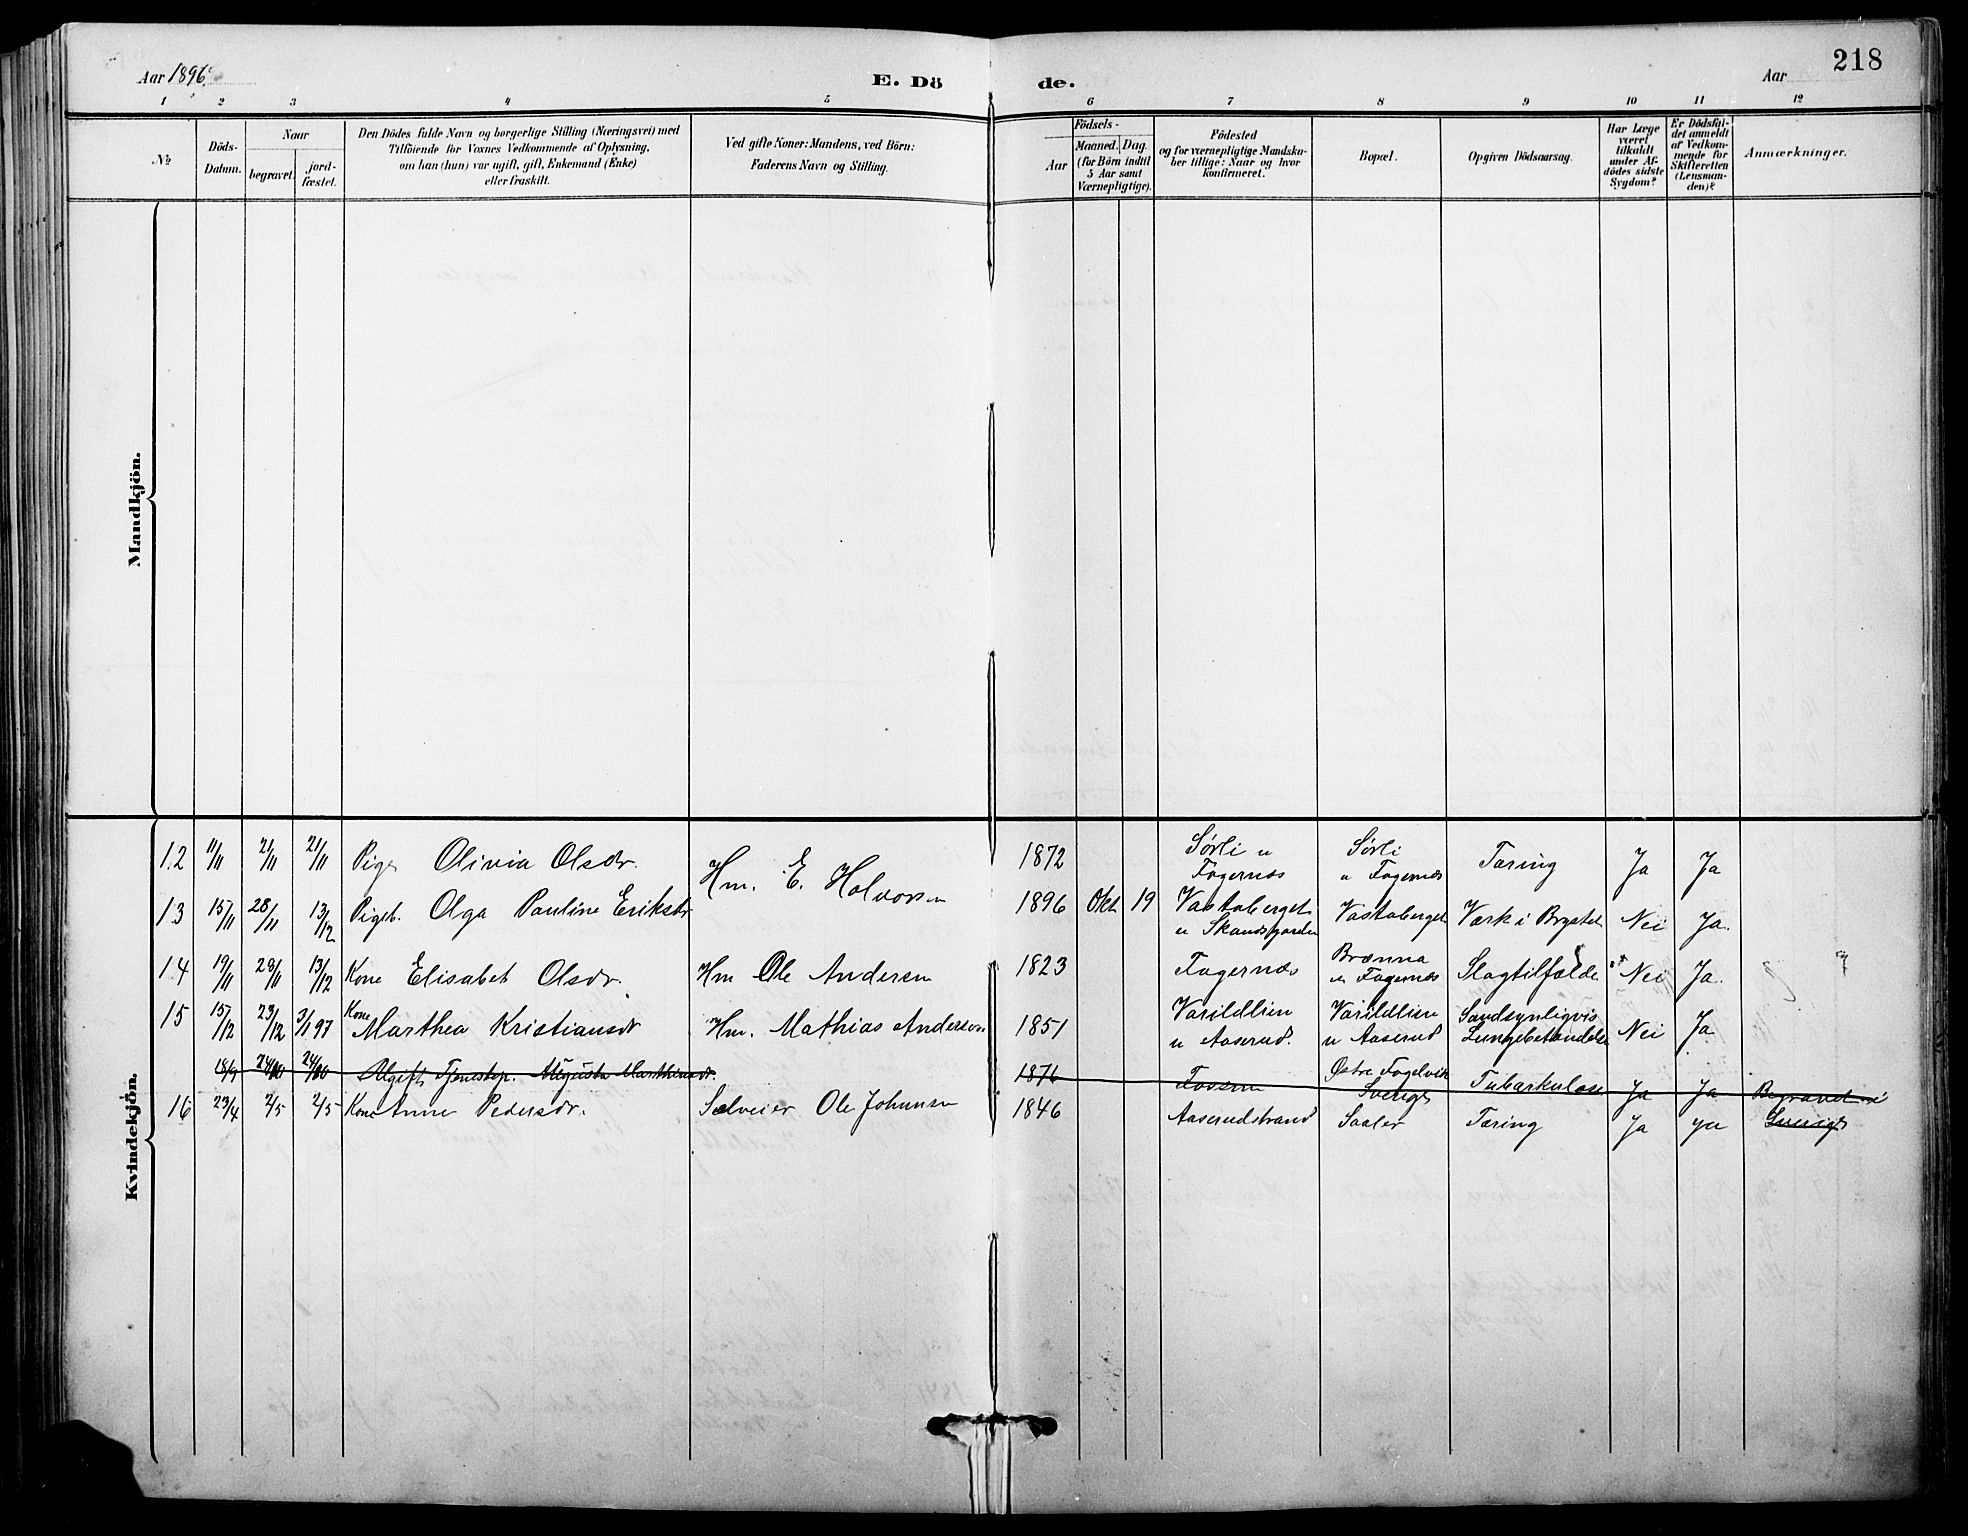 Aar 1896.
E. Dö
de.
Aar
218
1 2 3 4 5 6 7 8 9 10 11 12
No
Döds-
Datum.
Naar
begravet.
jord-
fæstet.
Den Dödes fulde Navn og borgerlige Stilling (Næringsvei) med
Tilföiende for Voxnes Vedkommende af Oplysning,
om han (hun) var ugift, gift, Enkemand (Enke)
eller fraskilt.
Ved gifte Koner: Mandens, ved Börn:
Faderens Navn og Stilling.
Födsels-
Aar
Maaned. Dag.
(for Börn indtil
5 Aar samt
Værnepligtige).
Födested
og for værnepligtige Mandska-
ber tillige: Naar og hvor
konfirmeret.
Bopæl.
Opgiven Dödsaarsag.
Har Læge
været
tilkaldt
under Af-
dödes sidste
Sygdom?
Er Dödsfal-
det anmeldt
af Vedkom-
mende for
Skifteretten
(Lensman-
den)?
Anmærkninger.
Mandkjön.
Kvindekjön.
12 11/11 21/11 21/11 Pige Olivia Olsdr. 1872 Sørli u Fagernæs Sørli u Fagernæs Tæring Ja Ja
13 15/11 28/11 13/12 Pigeb. Olga Pauline Eriksdr Hm. E. Halvorsen 1896 Okt 19 Vastaberget u Skandsgarden Vastaberget Værk i Brystet Nei Ja.
14 19/11 28/11 13/12 Kone Elisabet Olsdr. Hm Ole Andersen 1823 Fagernæs Brænna u Fagernæs Slagtilfælde Nei Ja.
15 15/12 23/12 3/1 97 Kone Marthea Kristiansdr Hm. Mathias Anderson 1851 Varildlien u Aaserud. Varildlien u Aaserud Sandsynligvis Lungebetændelse Nei Ja
18/9 24/10 24/10 Ugift Tjenestep. Augusta Marthinsdr. 1876 Østre Fagelvik Sverige Tubarkulose Ja Ja Begravet i Sverige
16 23/4 2/5 2/5 Kone Anne Pedersdr. Sælveier Ole Johansen 1846 Aaserudstrand Saaler Tæring Ja ja